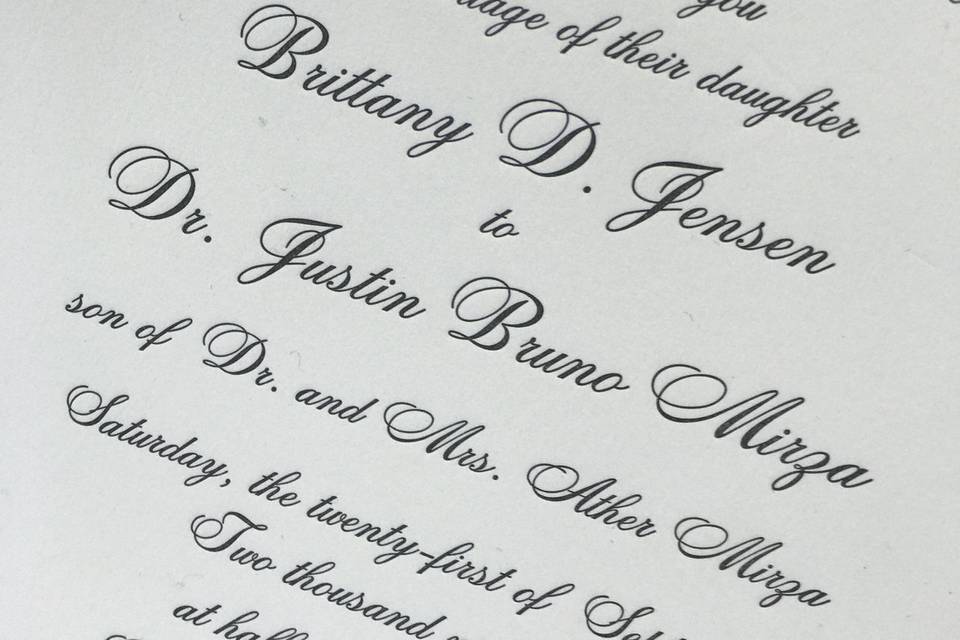 you
of their daughter
Brittany D. Jensen
to
Dr. Justin Bruno Mirza
son of Dr. and Mrs. Ather Mirza
Saturday, the twenty-first of
Two thousand
at half